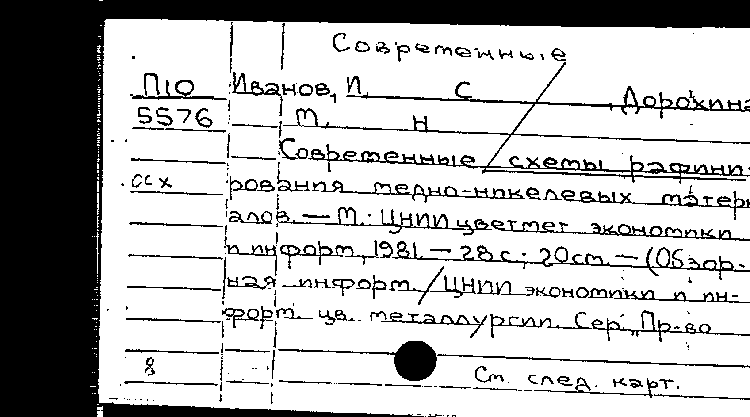 Современные
П10 Иванов, И. С., Дорохина
5576 М. Н
Современные схемы рафини-
ссх рования медно-никелевых матери
алов. — М.: ЦНИИцветмет экономики
и информ, 1981 — 28с; 20см. — (Обзор-
ная информ. / ЦНИИ экономики и ин-
форм. цв. металлургии. Сер. „Пр-во
8 См. след. карт.